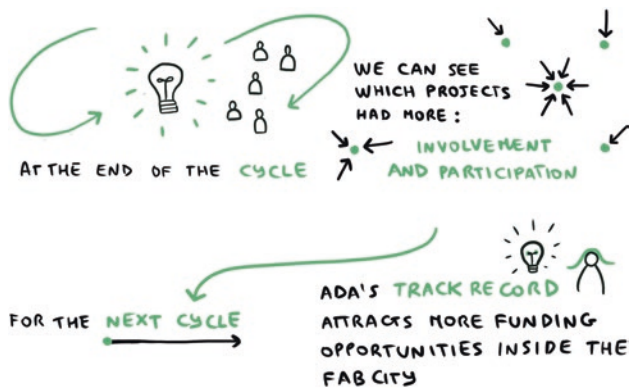 AT THE END OF THE CYCLE
WE CAN SEE
WHICH PROJECTS
HAD MORE:
INVOLVEMENT
AND PARTICIPATION
FOR THE NEXT CYCLE
ADA'S TRACK RECORD
ATTRACTS MORE FUNDING
OPPORTUNITIES INSIDE THE
FAB CITY